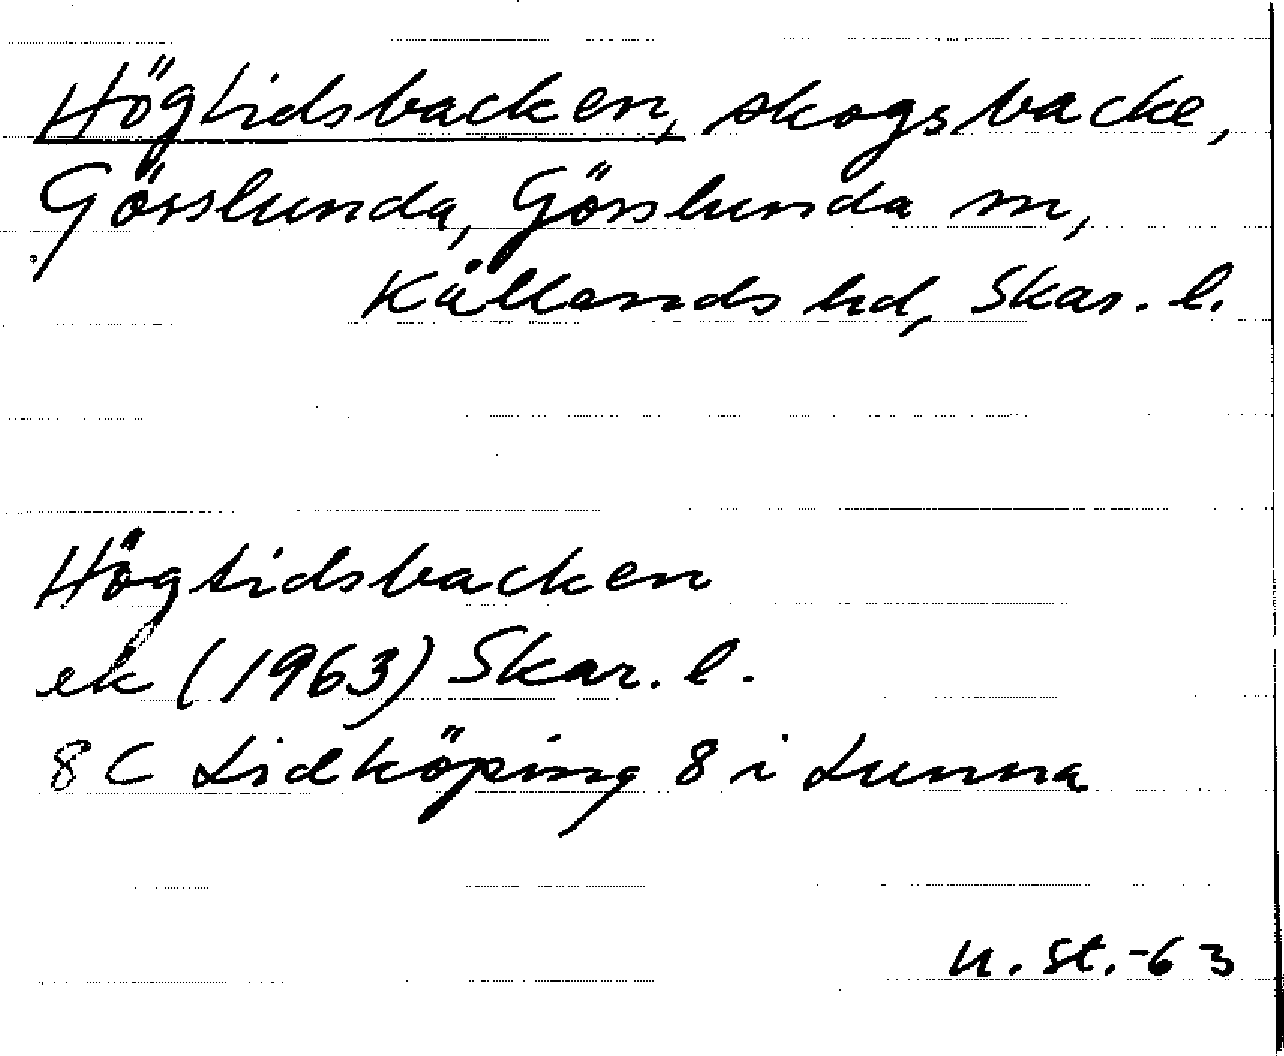 Högtidsbacken, skogsbacke,
Gösslunda, Gösslunda sn,
Kållands hd, Skar. l.
Högtidsbacken
ek (1963) Skar. l.
8 C Lidköping 8 i Lunna
U. St. -63